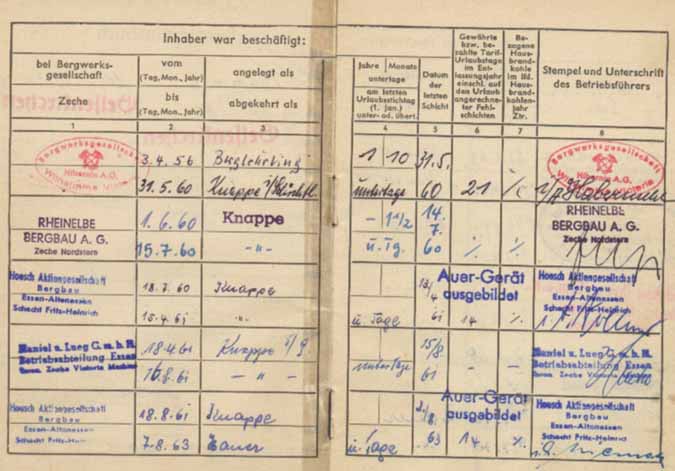 Inhaber war beschäftigt:
bei Bergwerks-
gesellschaft
Zeche
vom
(Tag, Mon., Jahr)
bis
(Tag, Mon., Jahr)
angelegt als
abgekehrt als
1 2 3
Jahre Monate
untertage
am letzten
Urlaubsstichtag
(1. Jan.)
unter- od. übert.
Datum
der
letzten
Schicht
Gewährte
bzw. be-
zahlte Tarif-
Urlaubstage
im Ent-
lassungsjahr
einschl. auf
den Urlaub
angerechne-
ter Fehl-
schichten
Be-
zogene
Haus-
brand-
kohle
im lfd.
Haus-
brand-
kohlen-
jahr
Ztr.
Stempel und Unterschrift
des Betriebsführers
4 5 6 7 8
Bergwerksgesellschaft
Hibernia A.G.
3.4.56 Berglehrling
31.5.60 Knappe
1 10 31.5.
untertage 60 21
Bergwerksgesellschaft
Hibernia A.G.
RHEINELBE
BERGBAU A. G.
Zeche Nordstern
1.6.60 Knappe
15.7.60 -"-
- 1 1/2 14.
7.
u. Tg. 60
RHEINELBE
BERGBAU A. G.
Zeche Nordstern
Hoesch Aktiengesellschaft
Bergbau
Essen-Altenessen
Schacht Fritz-Heinrich
18.7.60 Knappe
15.4.61 -"-
Auer-Gerät
ausgebildet
u. Tage 61 14
Hoesch Aktiengesellschaft
Bergbau
Essen-Altenessen
Schacht Fritz-Heinrich
Haniel u. Lueg G. m. b. H.
Betriebsabteilung Essen
Zeche Victoria Mathias
18.4.61 Knappe
16.8.61 - " -
15/8.
untertage 61 -
Haniel u. Lueg G. m. b. H.
Betriebsabteilung Essen
Zeche Victoria Mathias
Hoesch Aktiengesellschaft
Bergbau
Essen-Altenessen
Schacht Fritz-Heinrich
18.8.61 Knappe
7.8.63 Hauer
Auer-Gerät
ausgebildet
u. Tage 63 14
Hoesch Aktiengesellschaft
Bergbau
Essen-Altenessen
Schacht Fritz-Heinrich